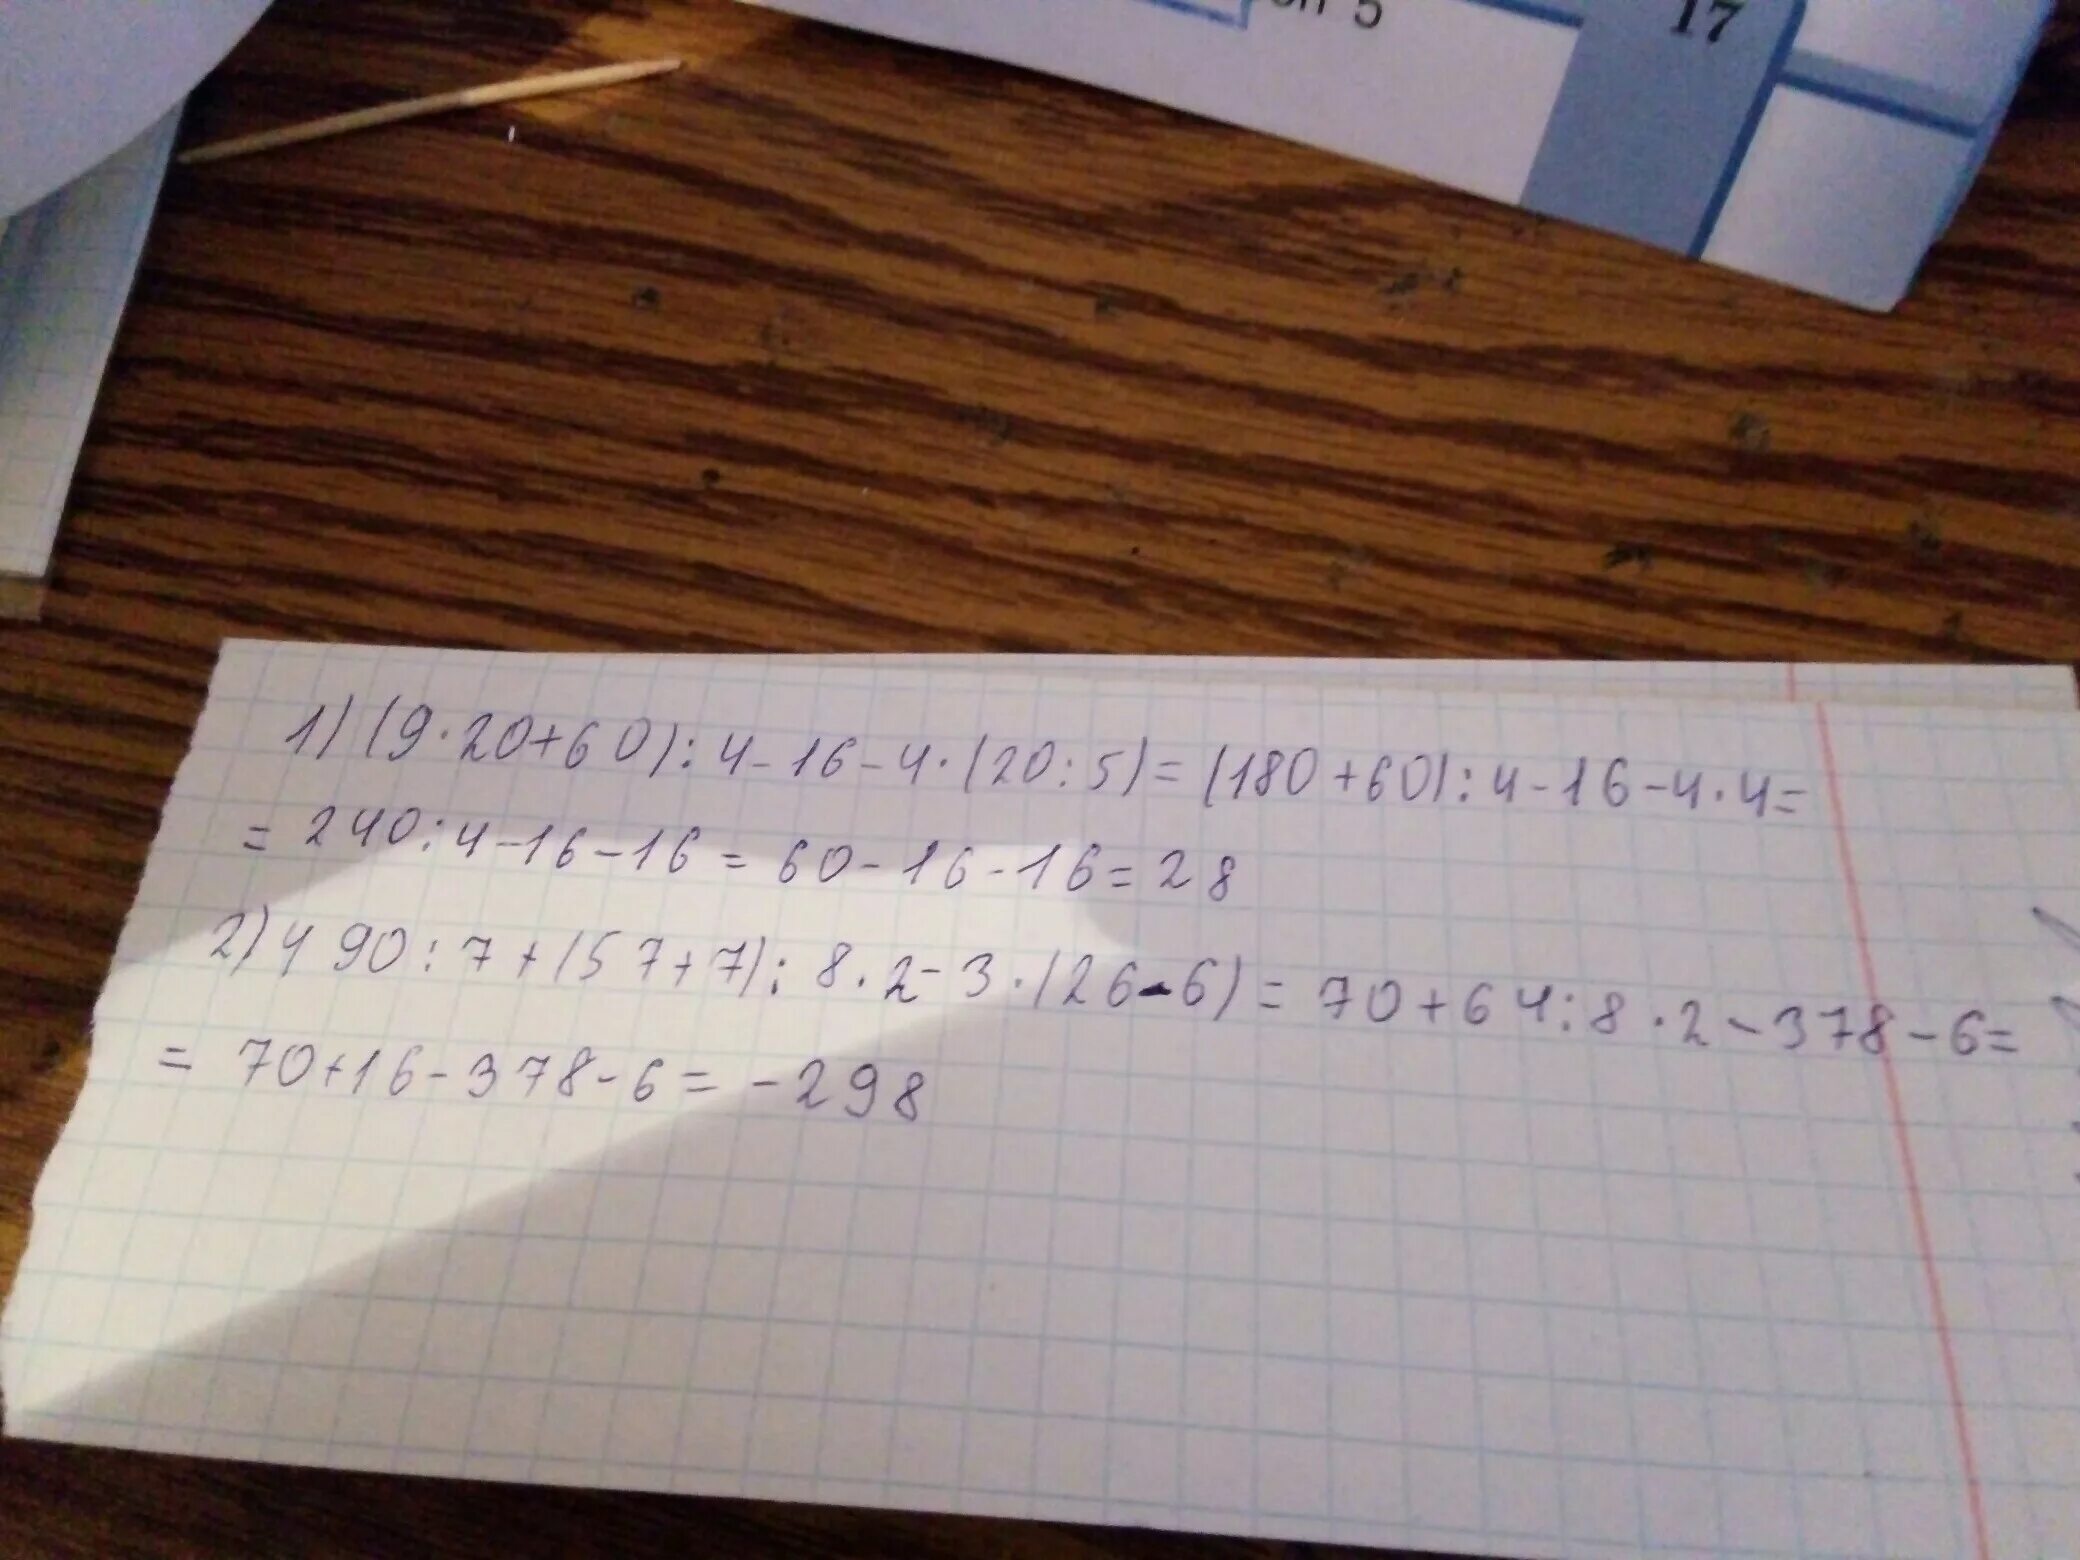 5
17
1) (9·20+60):4-16-4·(20:5)=(180+60):4-16-4·4=
=240:4-16-16=60-16-16=28
2) 490:7+(57+7):8·2-3·(26-6)=70+64:8·2-378-6=
=70+16-378-6=-298